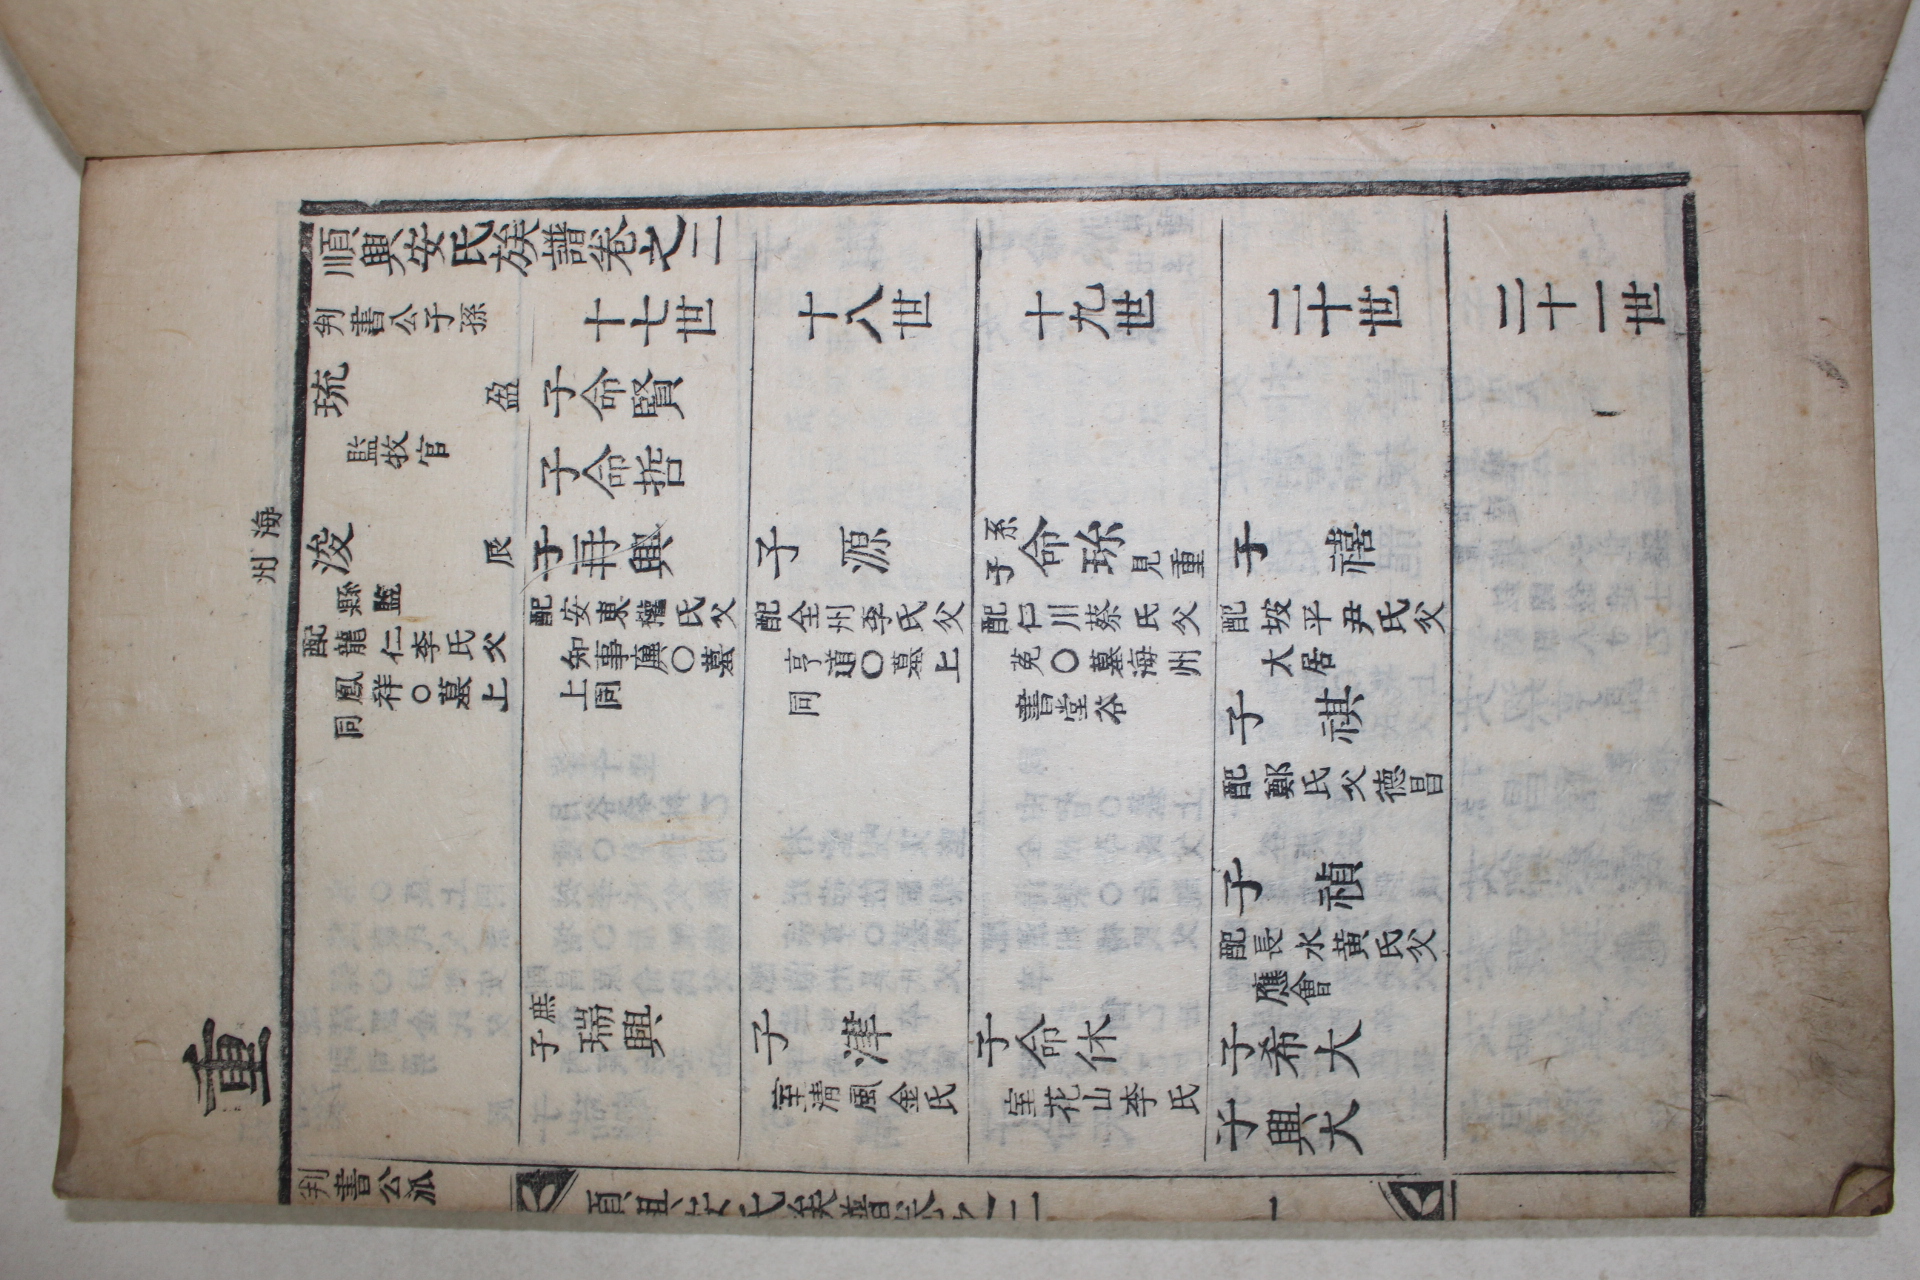 順興安氏族譜卷之二
判書公子孫
十七世
十八世
十九世
二十世
二十一世
琉
盈
子命賢
監牧官
子命哲
海州
浚
辰
縣監
配龍仁李氏父
鳳祥○墓上
同
子再興
配安東權氏父
知事○墓
上同
子源
配全州李氏父
亨道○墓上
同
系子命珎
見重
配仁川蔡氏父
○墓海州
書堂谷
子禧
配坡平尹氏父
太居
子祺
配鄭氏父德昌
子禎
配長水黃氏父
應會
重
庶子瑞興
子
室淸風金氏
子命休
室花山李氏
子希大
子興大
判書公派
順興安氏族譜卷之二
一